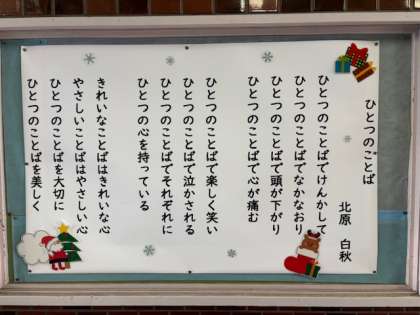 ひとつのことば
北原 白秋
ひとつのことばでけんかして
ひとつのことばでなかなおり
ひとつのことばで頭が下がり
ひとつのことばで心が痛む
ひとつのことばで楽しく笑い
ひとつのことばで泣かされる
ひとつのことばでそれぞれに
ひとつの心を持っている
きれいなことばはきれいな心
やさしいことばはやさしい心
ひとつのことばを大切に
ひとつのことばを美しく